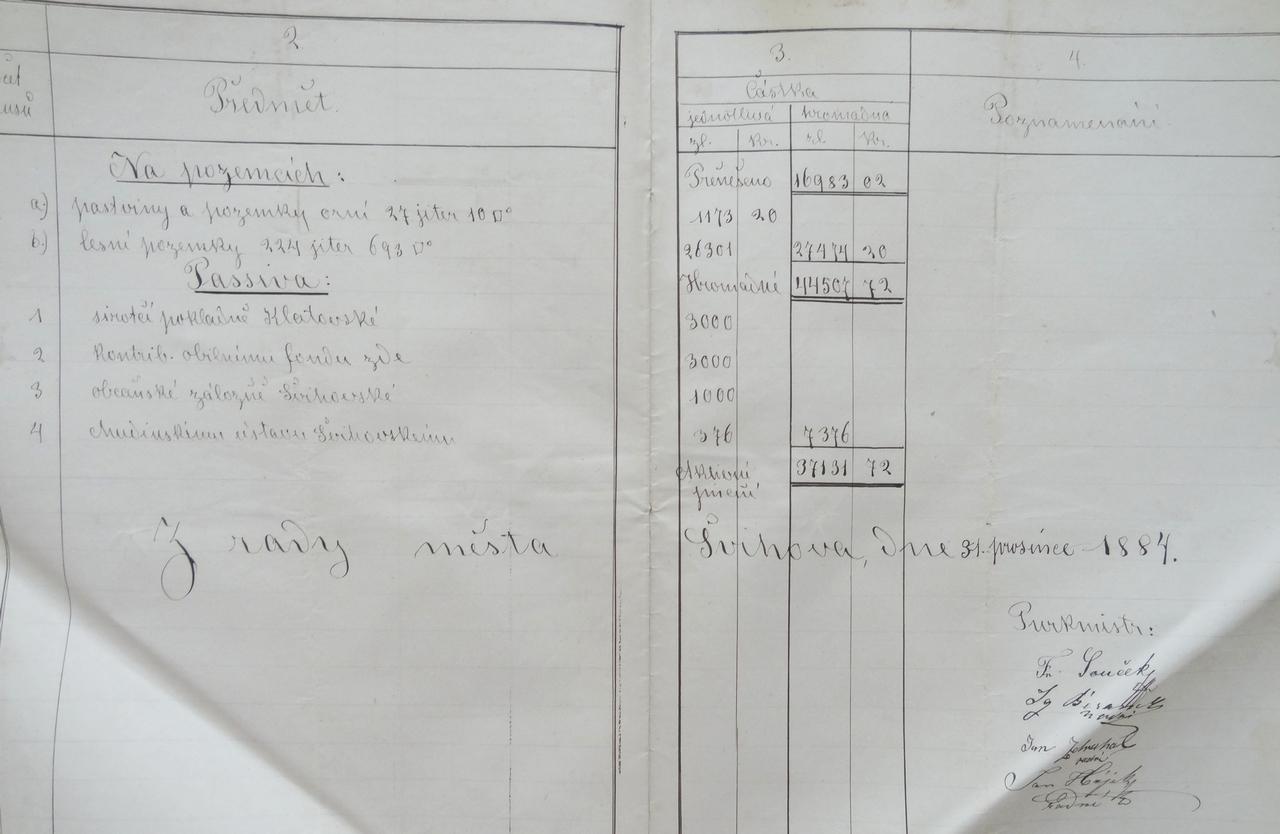 2
3.
4.
Předmět.
Částka
Poznamenání
jednotlivá hromadná
zl. kr. zl. kr.
Na pozemcích: Přenešeno 16983 02
a.) pastviny a pozemky orní 27 jiter 10□° 1173 20
b.) lesní pozemky 224 jiter 693□° 26301 27474 20
Passiva: Hromadně 44507 72
1 sirotčí pokladně Klatovské 3000
2 Kontrib. obilnímu fondu zde 3000
3 občanské záložně Švihovské 1000
4 chudinskému ústavu Švihovskému 376 7376
37131 72
jmění
Z rady města Švihova, dne 31. prosince 1884.
Purkmistr:
Fr. Souček
Jan
radní
Jan Hájek
radní